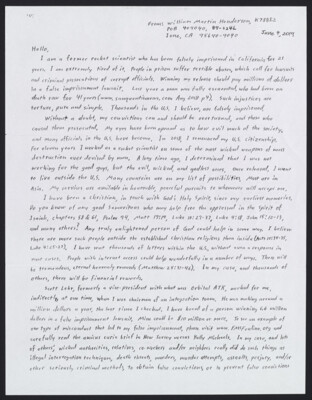 From: William Martin Henderson, K78882
P.O. 409040, 
Ione, CA 95640-9040
June 9, 2009
Hello,
I am a former rocket scientist who has been falsely imprisoned in California for
years. I am extremely tired of it. People in prison suffer terrible abuse, which call for lawsuits
and criminal prosecutions of corrupt officials. Winning my release should pay millions of dollars
in a false imprisonment lawsuit. Last year a man was fully exonerated who had been on
death row for years . Such injustices are
torture, pure and simple. Thousands in the U.S., I believe, are falsely imprisoned.
Without a doubt, my convictions can and should be overturned, and those who
caused them prosecuted. My eyes have been opened as to how evil much of the society,
and many officials in the U.S. have become. In 
For eleven years I worked as a rocket scientist on some of the most wicked weapons of mass
destruction ever devised by men. A long time ago, I determined that I was not
working for the good guys, but the evil, wicked and godless ones. Once released, I want
to live outside the U.S. Many countries are on my list of possibilities, most are in
Asia. My services are available in honorable, peaceful pursuits to whomever will accept me.
I have been a Christian, in touch with God's Holy Spirit since my earliest memories.
Do you know of any good connections who may help free the oppressed in the spirit of
Isaiah, chapters 58 & 61, Psalm 
and many others? Any truly enlightened person of God could help in some way. I believe
there are more such people outside the established Christian religions than inside
 I have sent thousands of letters within the U.S. without even a response in
most cases. People with internet access could help wonderfully in a number of ways. There will
be tremendous, eternal heavenly rewards (Matthew 25:31-46). In my case, and thousands of
others, there will be financial rewards.
Scott Lake, formerly a vice-president with what was Orbital ATK, worked for me,
indirectly, at one time, when I was chairman of an integration team. He was making around a
million dollars a year, the last time I checked. I have heard of a person winning 
dollars in a false imprisonment lawsuit. Mine could be $10 million or more. To see an example of
one type of misconduct that led to my false imprisonment, please visit www. and
carefully read the amicus curiae brief in New Jersey versus 
of others, wicked authorities, relatives, co-workers and/or neighbors really did do such things as
illegal interrogation techniques, death threats, murders, murder attempts, assaults, perjury, and/or
other seriously criminal methods, to obtain false convictions, or to prevent false convictions